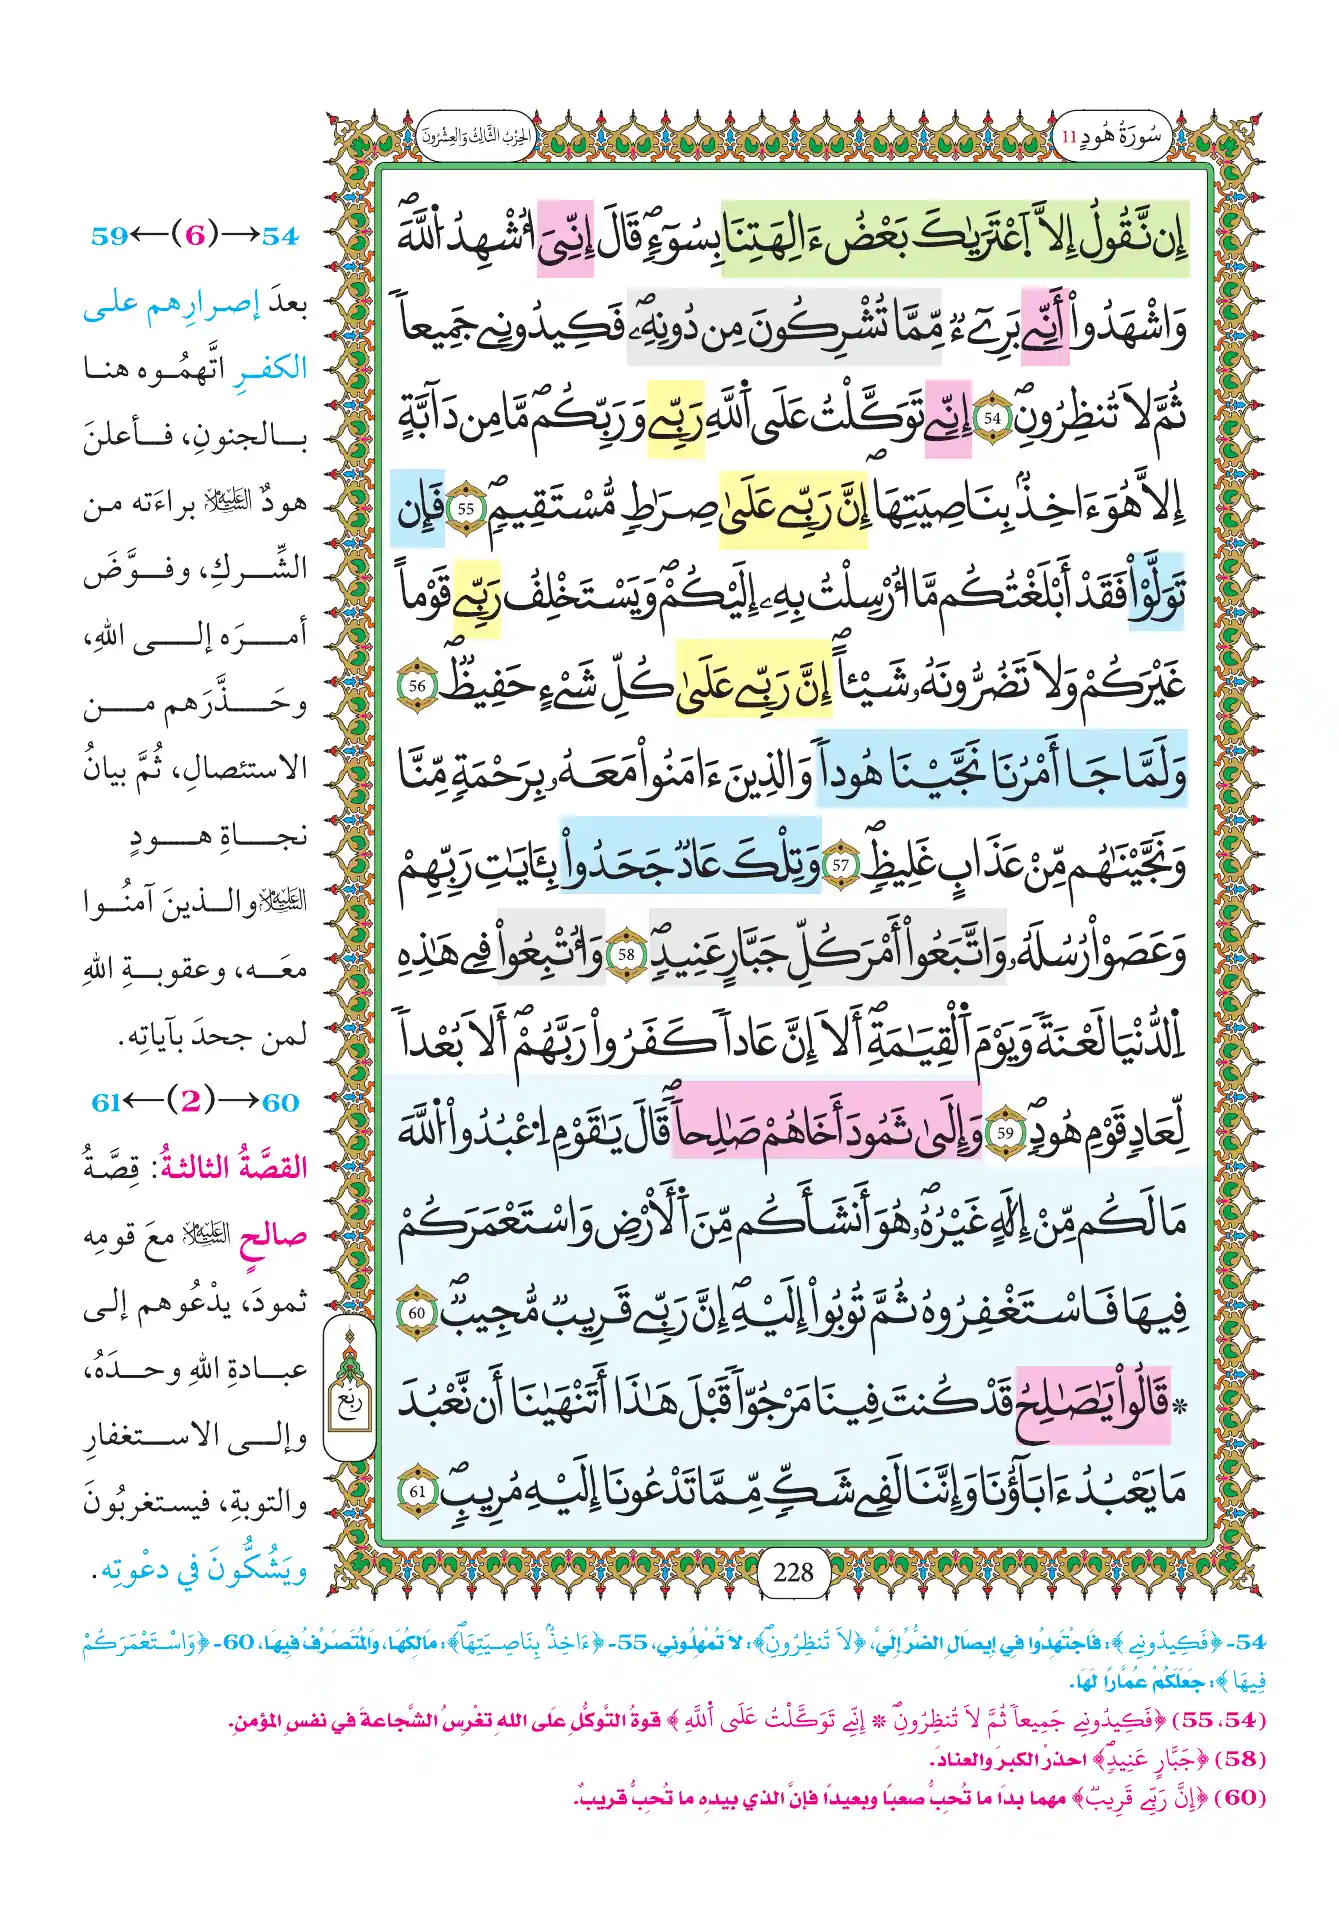 سُورَةُ هُودٍ 11
الحِزْبُ الثَّالِثُ وَالعِشْرُونَ
إِن نَّقُولُ إِلاَّ اَ۪عْتَرَيٰكَ بَعْضُ ءَالِهَتِنَا بِسُوٓءٖۖ قَالَ إِنِّيَ أُشْهِدُ اُ۬للَّهَۖ
وَاشْهَدُوٓاْ أَنِّے بَرِےٓءٞ مِّمَّا تُشْرِكُونَ مِن دُونِهِۦۖ فَكِيدُونِے جَمِيعاٗ
ثُمَّ لاَ تُنظِرُونِۖ 54 إِنِّے تَوَكَّلْتُ عَلَى اَ۬للَّهِ رَبِّے وَرَبِّكُمۖ مَّا مِن دَآبَّةٍ
إِلاَّ هُوَ ءَاخِذُۢ بِنَاصِيَتِهَاۖ إِنَّ رَبِّے عَلَىٰ صِرَٰطٖ مُّسْتَقِيمٖۖ 55 فَإِن
تَوَلَّوْاْ فَقَدْ أَبْلَغْتُكُم مَّا أُرْسِلْتُ بِهِۦ إِلَيْكُمْۖ وَيَسْتَخْلِفُ رَبِّے قَوْماً
غَيْرَكُمْ وَلاَ تَضُرُّونَهُۥ شَيْـٔاًۖ إِنَّ رَبِّے عَلَىٰ كُلِّ شَےْءٍ حَفِيظٞۖ 56
وَلَمَّا جَا أَمْرُنَا نَجَّيْنَا هُوداٗ وَالذِينَ ءَامَنُواْ مَعَهُۥ بِرَحْمَةٖ مِّنَّا
وَنَجَّيْنَٰهُم مِّنْ عَذَابٍ غَلِيظٖۖ 57 وَتِلْكَ عَادٞ جَحَدُواْ بِـَٔايَٰتِ رَبِّهِمْ
وَعَصَوْاْ رُسُلَهُۥ وَاتَّبَعُواْ أَمْرَ كُلِّ جَبَّارٍ عَنِيدٖۖ 58 وَأُتْبِعُواْ فِے هَٰذِهِ
اِ۬لدُّنْيَا لَعْنَةٗ وَيَوْمَ اَ۬لْقِيَٰمَةِۖ أَلاَ إِنَّ عَاداٗ كَفَرُواْ رَبَّهُمْۖ أَلاَ بُعْداٗ
لِّعَادٖ قَوْمِ هُودٖۖ 59 وَإِلَىٰ ثَمُودَ أَخَاهُمْ صَٰلِحاٗۖ قَالَ يَٰقَوْمِ اِ۟عْبُدُواْ اُ۬للَّهَ
مَا لَكُم مِّنْ إِلَٰهٍ غَيْرُهُۥۖ هُوَ أَنشَأَكُم مِّنَ اَ۬لْأَرْضِ وَاسْتَعْمَرَكُمْ
فِيهَا فَاسْتَغْفِرُوهُ ثُمَّ تُوبُواْ إِلَيْهِۖ إِنَّ رَبِّے قَرِيبٞ مُّجِيبٞۖ 60
* قَالُواْ يَٰصَٰلِحُ قَدْ كُنتَ فِينَا مَرْجُوّاٗ قَبْلَ هَٰذَا أَتَنْهَيٰنَا أَن نَّعْبُدَ
مَا يَعْبُدُ ءَابَآؤُنَا وَإِنَّنَا لَفِے شَكّٖ مِّمَّا تَدْعُونَا إِلَيْهِ مُرِيبٖۖ 61
ربع
228
54→(6)←59
بعدَ إصرارِهم على
الكفرِ اتَّهمُوه هنا
بالجنونِ، فأعلنَ
هودٌ عليه السلام براءَته من
الشِّركِ، وفوَّضَ
أمرَه إلى اللهِ،
وحَذَّرَهم من
الاستئصالِ، ثُمَّ بيانُ
نجاةِ هودٍ
عليه السلام والذينَ آمنُوا
معَه، وعقوبةِ اللهِ
لمن جحدَ بآياتِه.
60→(2)←61
القصَّةُ الثالثةُ: قِصَّةُ
صالحٍ عليه السلام معَ قومِه
ثمودَ، يدْعُوهم إلى
عبادةِ اللهِ وحدَهُ،
وإلى الاستغفارِ
والتوبةِ، فيستغربُونَ
ويَشُكُّونَ في دعْوتِه.
54- ﴿فَكِيدُونِے﴾: فَاجْتَهِدُوا في إيصَالِ الضُّرِّ إليَّ، ﴿لاَ تُنظِرُونِۖ﴾: لا تُمْهِلُوني، 55- ﴿ءَاخِذُۢ بِنَاصِيَتِهَاۖ﴾: مَالِكُهَا، وَالمُتَصَرِّفُ فيهَا، 60- ﴿وَاسْتَعْمَرَكُمْ
فِيهَا﴾: جَعَلَكُمْ عُمَّارًا لَهَا.
(54، 55) ﴿فَكِيدُونِے جَمِيعاٗ ثُمَّ لاَ تُنظِرُونِۖ * إِنِّے تَوَكَّلْتُ عَلَى اَ۬للَّهِ﴾ قوةُ التَّوكُّلِ على اللهِ تغْرِسُ الشَّجاعةَ في نفسِ المؤمنِ.
(58) ﴿جَبَّارٍ عَنِيدٖۖ﴾ احذرْ الكبرَ والعنادَ.
(60) ﴿إِنَّ رَبِّے قَرِيبٞ﴾ مهما بدَا ما تُحبُّ صعبًا وبعيدًا فإنَّ الذي بيدِهِ ما تُحبُّ قريبٌ.